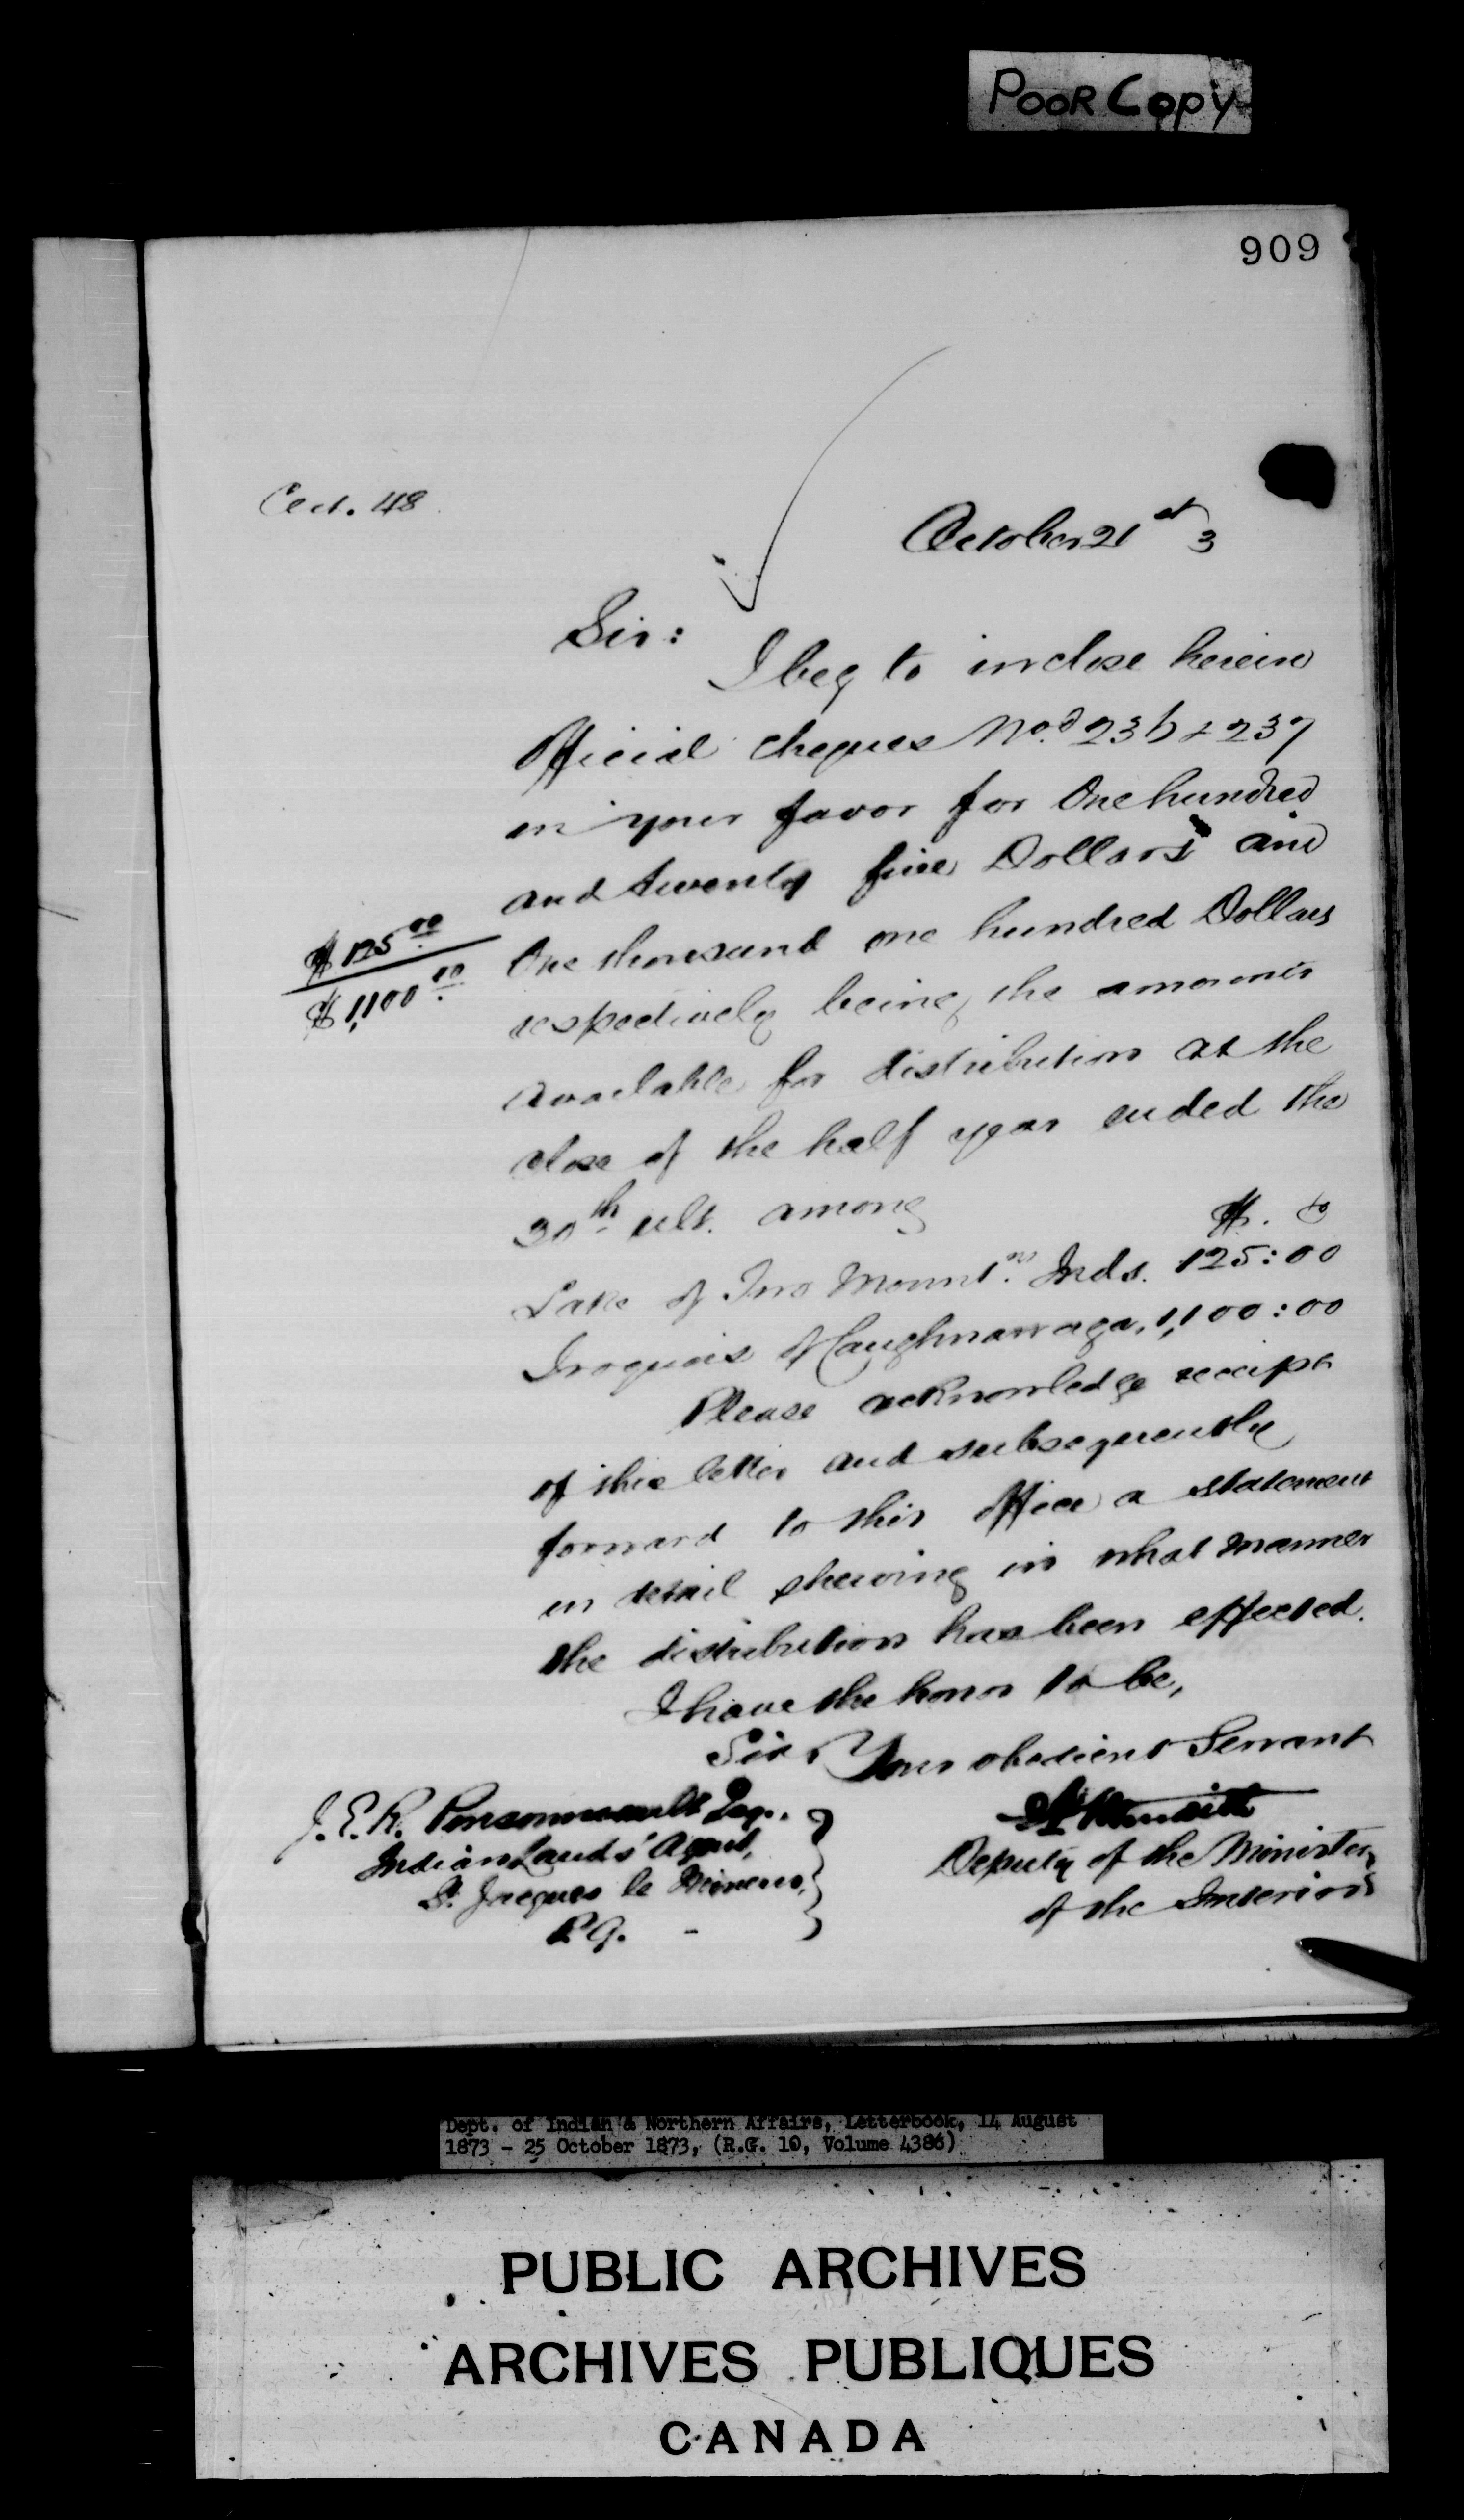 POOR Copy
909
Cect. 48.
October 21st 3
Sir:
I beg to inclose herein
Official cheques Nos. 236 & 237
in your favor for One hundred
and twenty five Dollars and
$125.00
One thousand one hundred Dollars
$1,100.00
respectively being the amounts
available for distribution at the
close of the half year ended the
30th ult. among
$. c
Lake of Two Mountns. Inds. 125:00
Iroquois of Caughnawaga, 1,100:00
Please acknowledge receipt
of this letter and subsequently
forward to this office a statement
in detail shewing in what manner
the distribution has been effected.
I have the honor to be,
Sir, Your obedient Servant
J. E. R. Esq.,
Indian Lands' Agent,
Deputy of the Minister
St. Jacques le Mineur,
of the Interior
P.Q. -
Dept. of Indian & Northern Affairs, Letterbook, 14 August
1873 - 25 October 1873, (R.G. 10, Volume 4386)
PUBLIC ARCHIVES
ARCHIVES PUBLIQUES
CANADA